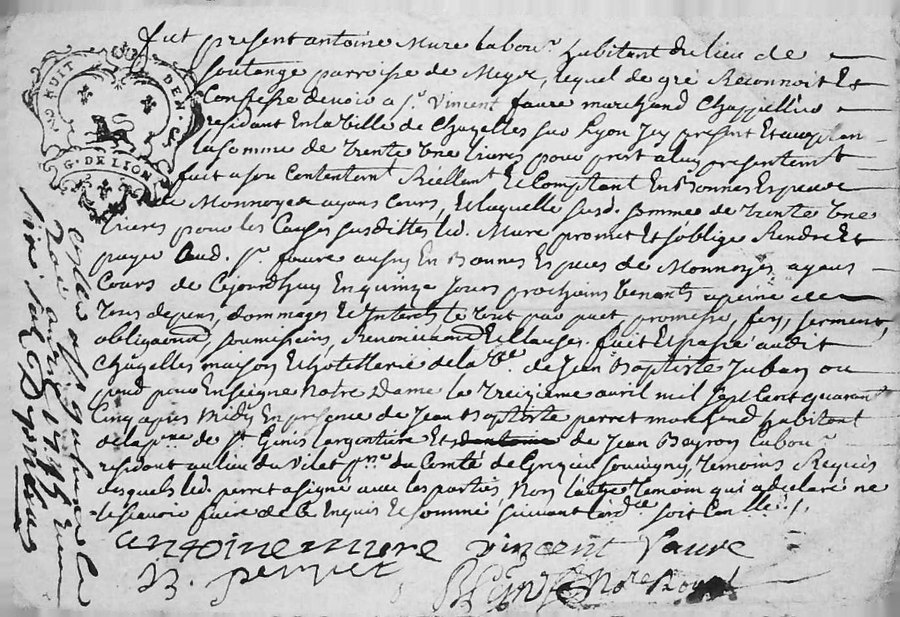 HUIT DEN.
G. DE LION
fut present antoine Mure labour habitant du lieu de
soulange parroisse de Meys, lequel de gré Reconnoit Et
Confesse devoir a Sr. Vincent faure marchand Chappellier
residant En la Ville de Chazelles sur Lyon Icy present Et acceptant
la somme de trente une livres pour prest a luy presentemt
fait a son Contentemt Réellemt Et Comptant En Bonnes Especes
de Monnoye ayans Cours, Et laquelle susd. somme de trente une
livres pour les Causes susdittes led. Mure promet Et soblige Rendre Et
payer Aud. Sr. faure aussy En Bonnes Especes de Monnoyes ayans
Cours de Cejourdhuy En quinze jours prochains Venants apeine de
tous depens, dommages Et Interets le tout par pact promesse, foy, serment,
obligaond, soumissions, Renonciaond Et Clauses. fait Et passé audit
Chazelles maison Et hotellerie de la Ve. de Jean Baptiste Juban ou
pend pour Enseigne Notre Dame le treizieme avril mil sept Cent quarante
Cinq apres Midy En presence de Jean Baptiste perret marchand habitant
de la psse de St Genis largentiere Et de Jean Bayron labour
residant au lieu du Vilet psse du Comté de Souvigny, temoins Requis
lesquels led. perret a signé avec les parties, Non l'autre temoin qui a declaré ne
le scavoir faire de Ce Enquis Et sommé suivant lordce soit Conllé
antoine mure vincent faure
B. perret Nore Royal
avril 1745